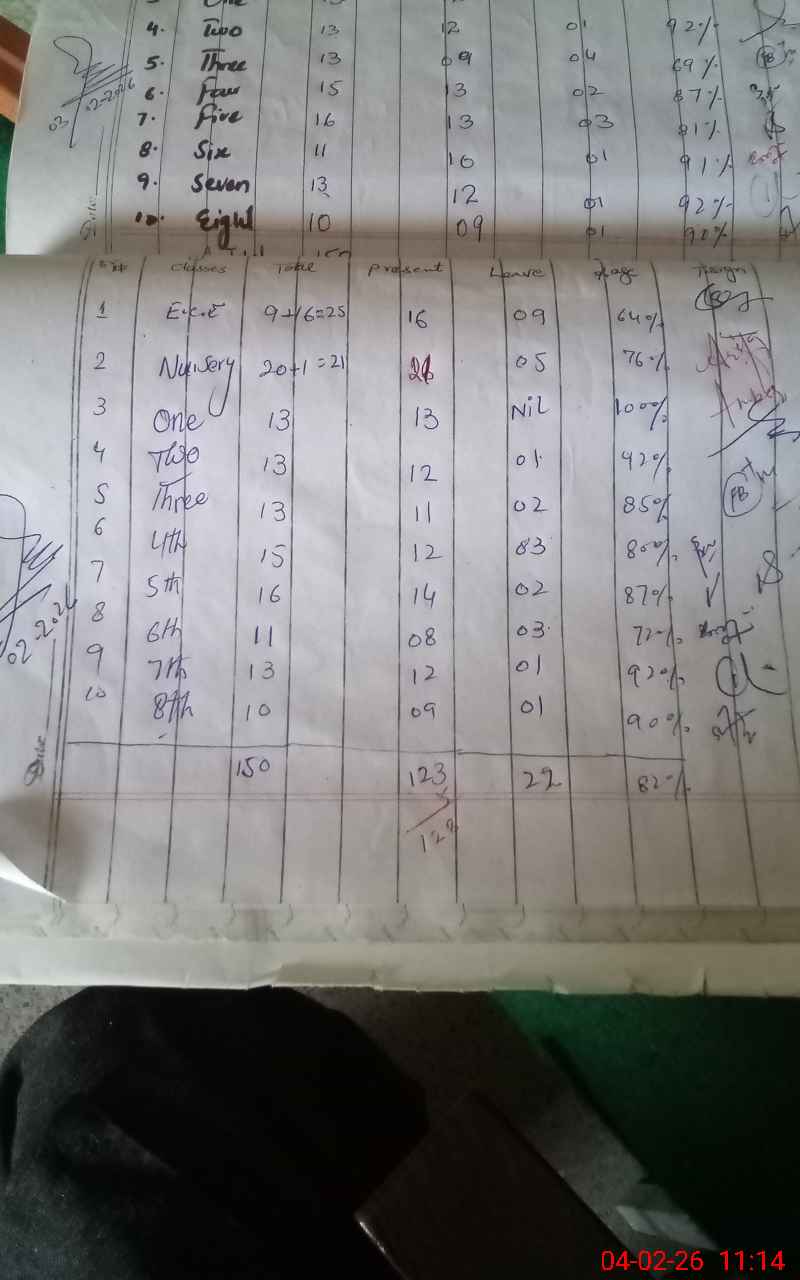 4. Two 13 12 01 92%
5. Three 13 09 04 69%
6. Four 15 13 02 87%
7. Five 16 13 03 81%
8. Six 11 10 01 91%
9. Seven 13 12 01 92%
10. Eight 10 09 01 90%
03 02-2026
Date:
Classes Total Present Leave %age
1 E.C.E 9+16=25 16 09 64%
2 Nursery 20+1=21 05 76%
3 One 13 13 Nil 100%
4 Two 13 12 01 92%
5 Three 13 11 02 85%
6 4th 15 12 03 80%
7 5th 16 14 02 87%
8 6th 11 08 03 72%
9 7th 13 12 01 92%
10 8th 10 09 01 90%
150 123 22 82%
02-2026
Date
04-02-26 11:14